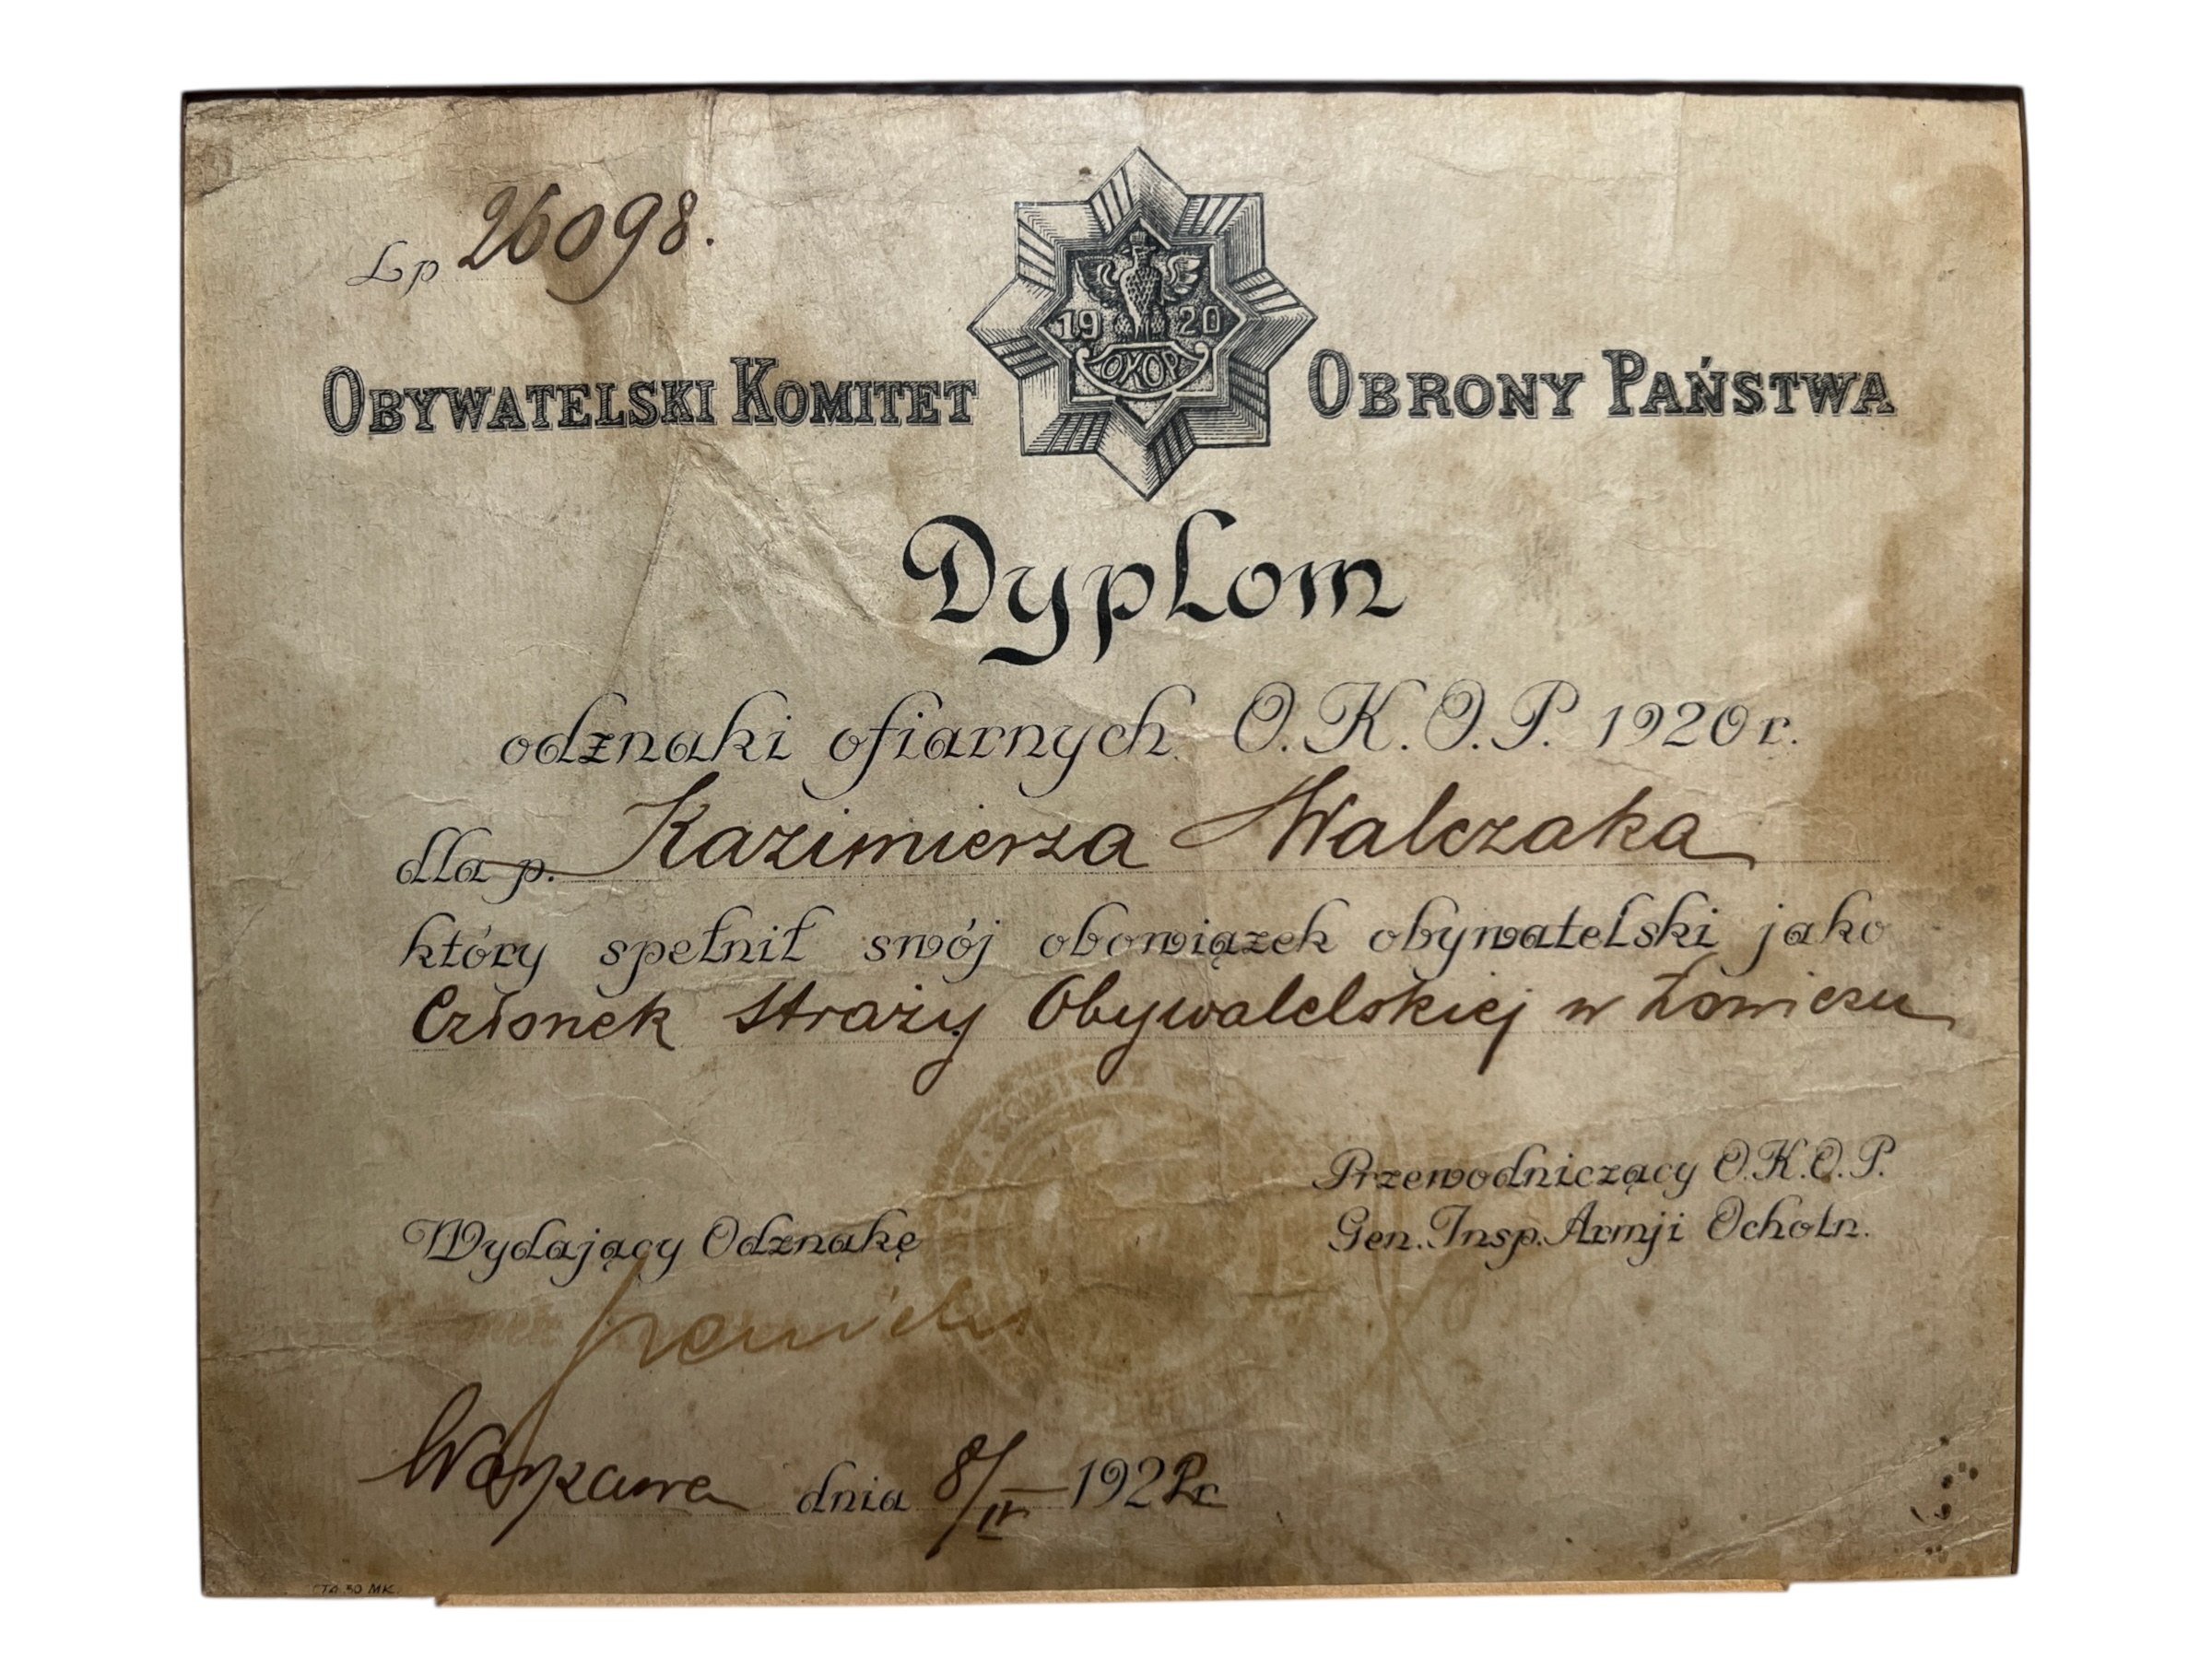 Lp 26098.
19 20
OKOP
Obywatelski Komitet Obrony Państwa
Dyplom
odznaki ofiarnych O.K.O.P. 1920 r.
dla p. Kazimierza Walczaka
który spełnił swój obowiązek obywatelski jako
Członek Straży Obywatelskiej w Łowiczu
Przewodniczący O.K.O.P.
Gen. Insp. Armji Ochotn.
Wydający Odznakę
Warszawa dnia 8/IV 1922 r.